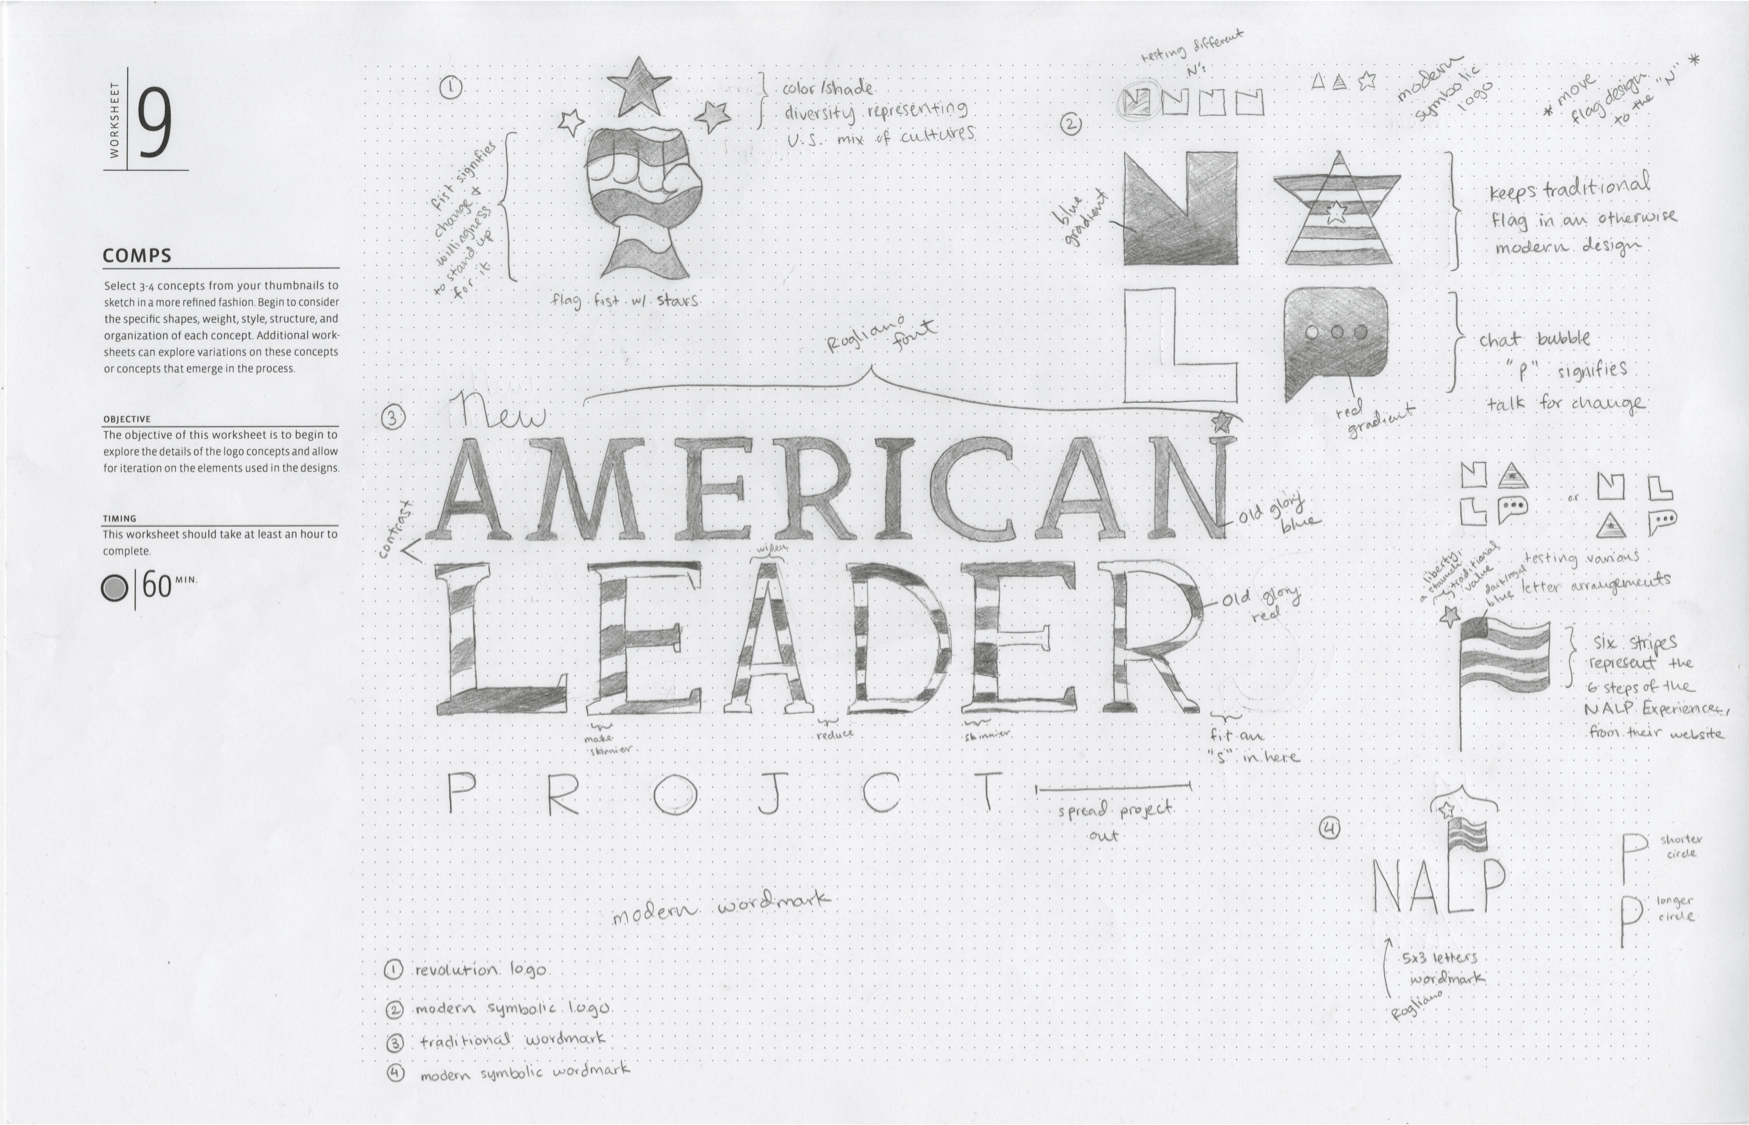 WORKSHEET
9
COMPS
Select 3-4 concepts from your thumbnails to
sketch in a more refined fashion. Begin to consider
the specific shapes, weight, style, structure, and
organization of each concept. Additional work-
sheets can explore variations on these concepts
or concepts that emerge in the process.
OBJECTIVE
The objective of this worksheet is to begin to
explore the details of the logo concepts and allow
for iteration on the elements used in the designs.
TIMING
This worksheet should take at least an hour to
complete.
60 MIN.
1
color/shade
diversity representing
U.S. mix of cultures
fist signifies
change +
willingness
to stand up
for it
flag fist w/ stars
2
testing different
N's
modern
symbolic
logo
* move
flag design
to the "N" *
blue
gradient
N
keeps traditional
flag in an otherwise
modern design
L
chat bubble
"p" signifies
talk for change
red
gradient
Rogliano
font
3
New
AMERICAN
old glory
blue
contrast
widen
LEADER
old glory
red
make
skinnier
reduce
skinnier
fit an
"S" in here
P R O J C T
spread project
out
or
testing various
letter arrangements
liberty,
a staunch
traditional
value
blue
six stripes
represent the
6 steps of the
NALP Experience,
from their website
4
NALP
P shorter
circle
P longer
circle
5x3 letters
wordmark
Rogliano
modern wordmark
1 revolution logo
2 modern symbolic logo
3 traditional wordmark
4 modern symbolic wordmark